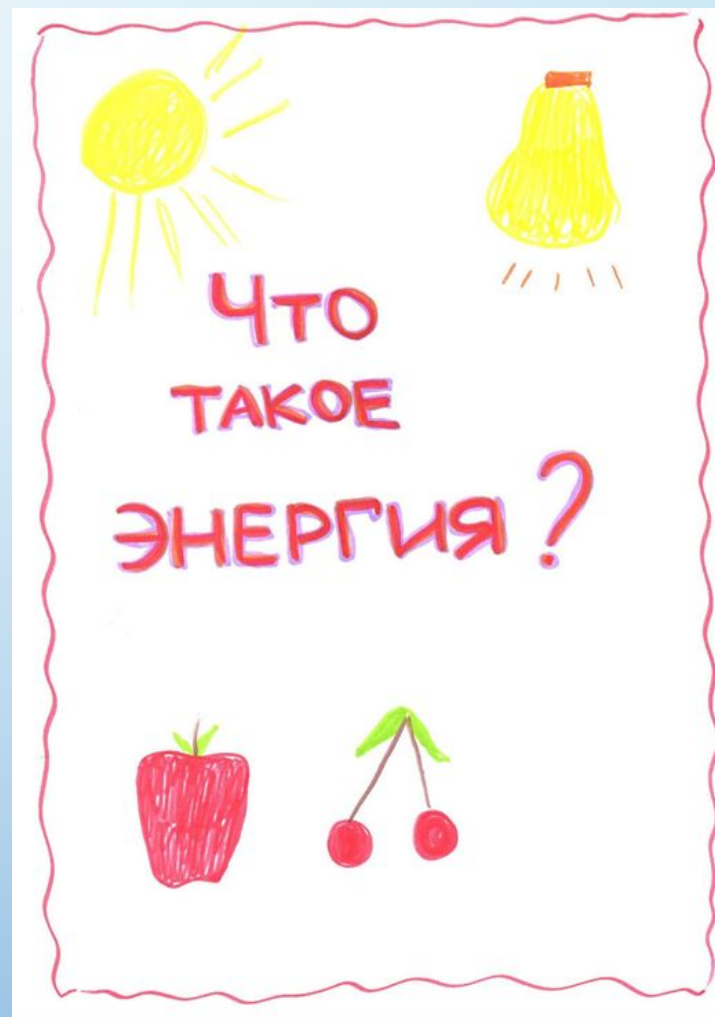 Что
ТАКОЕ
ЭНЕРГИЯ?